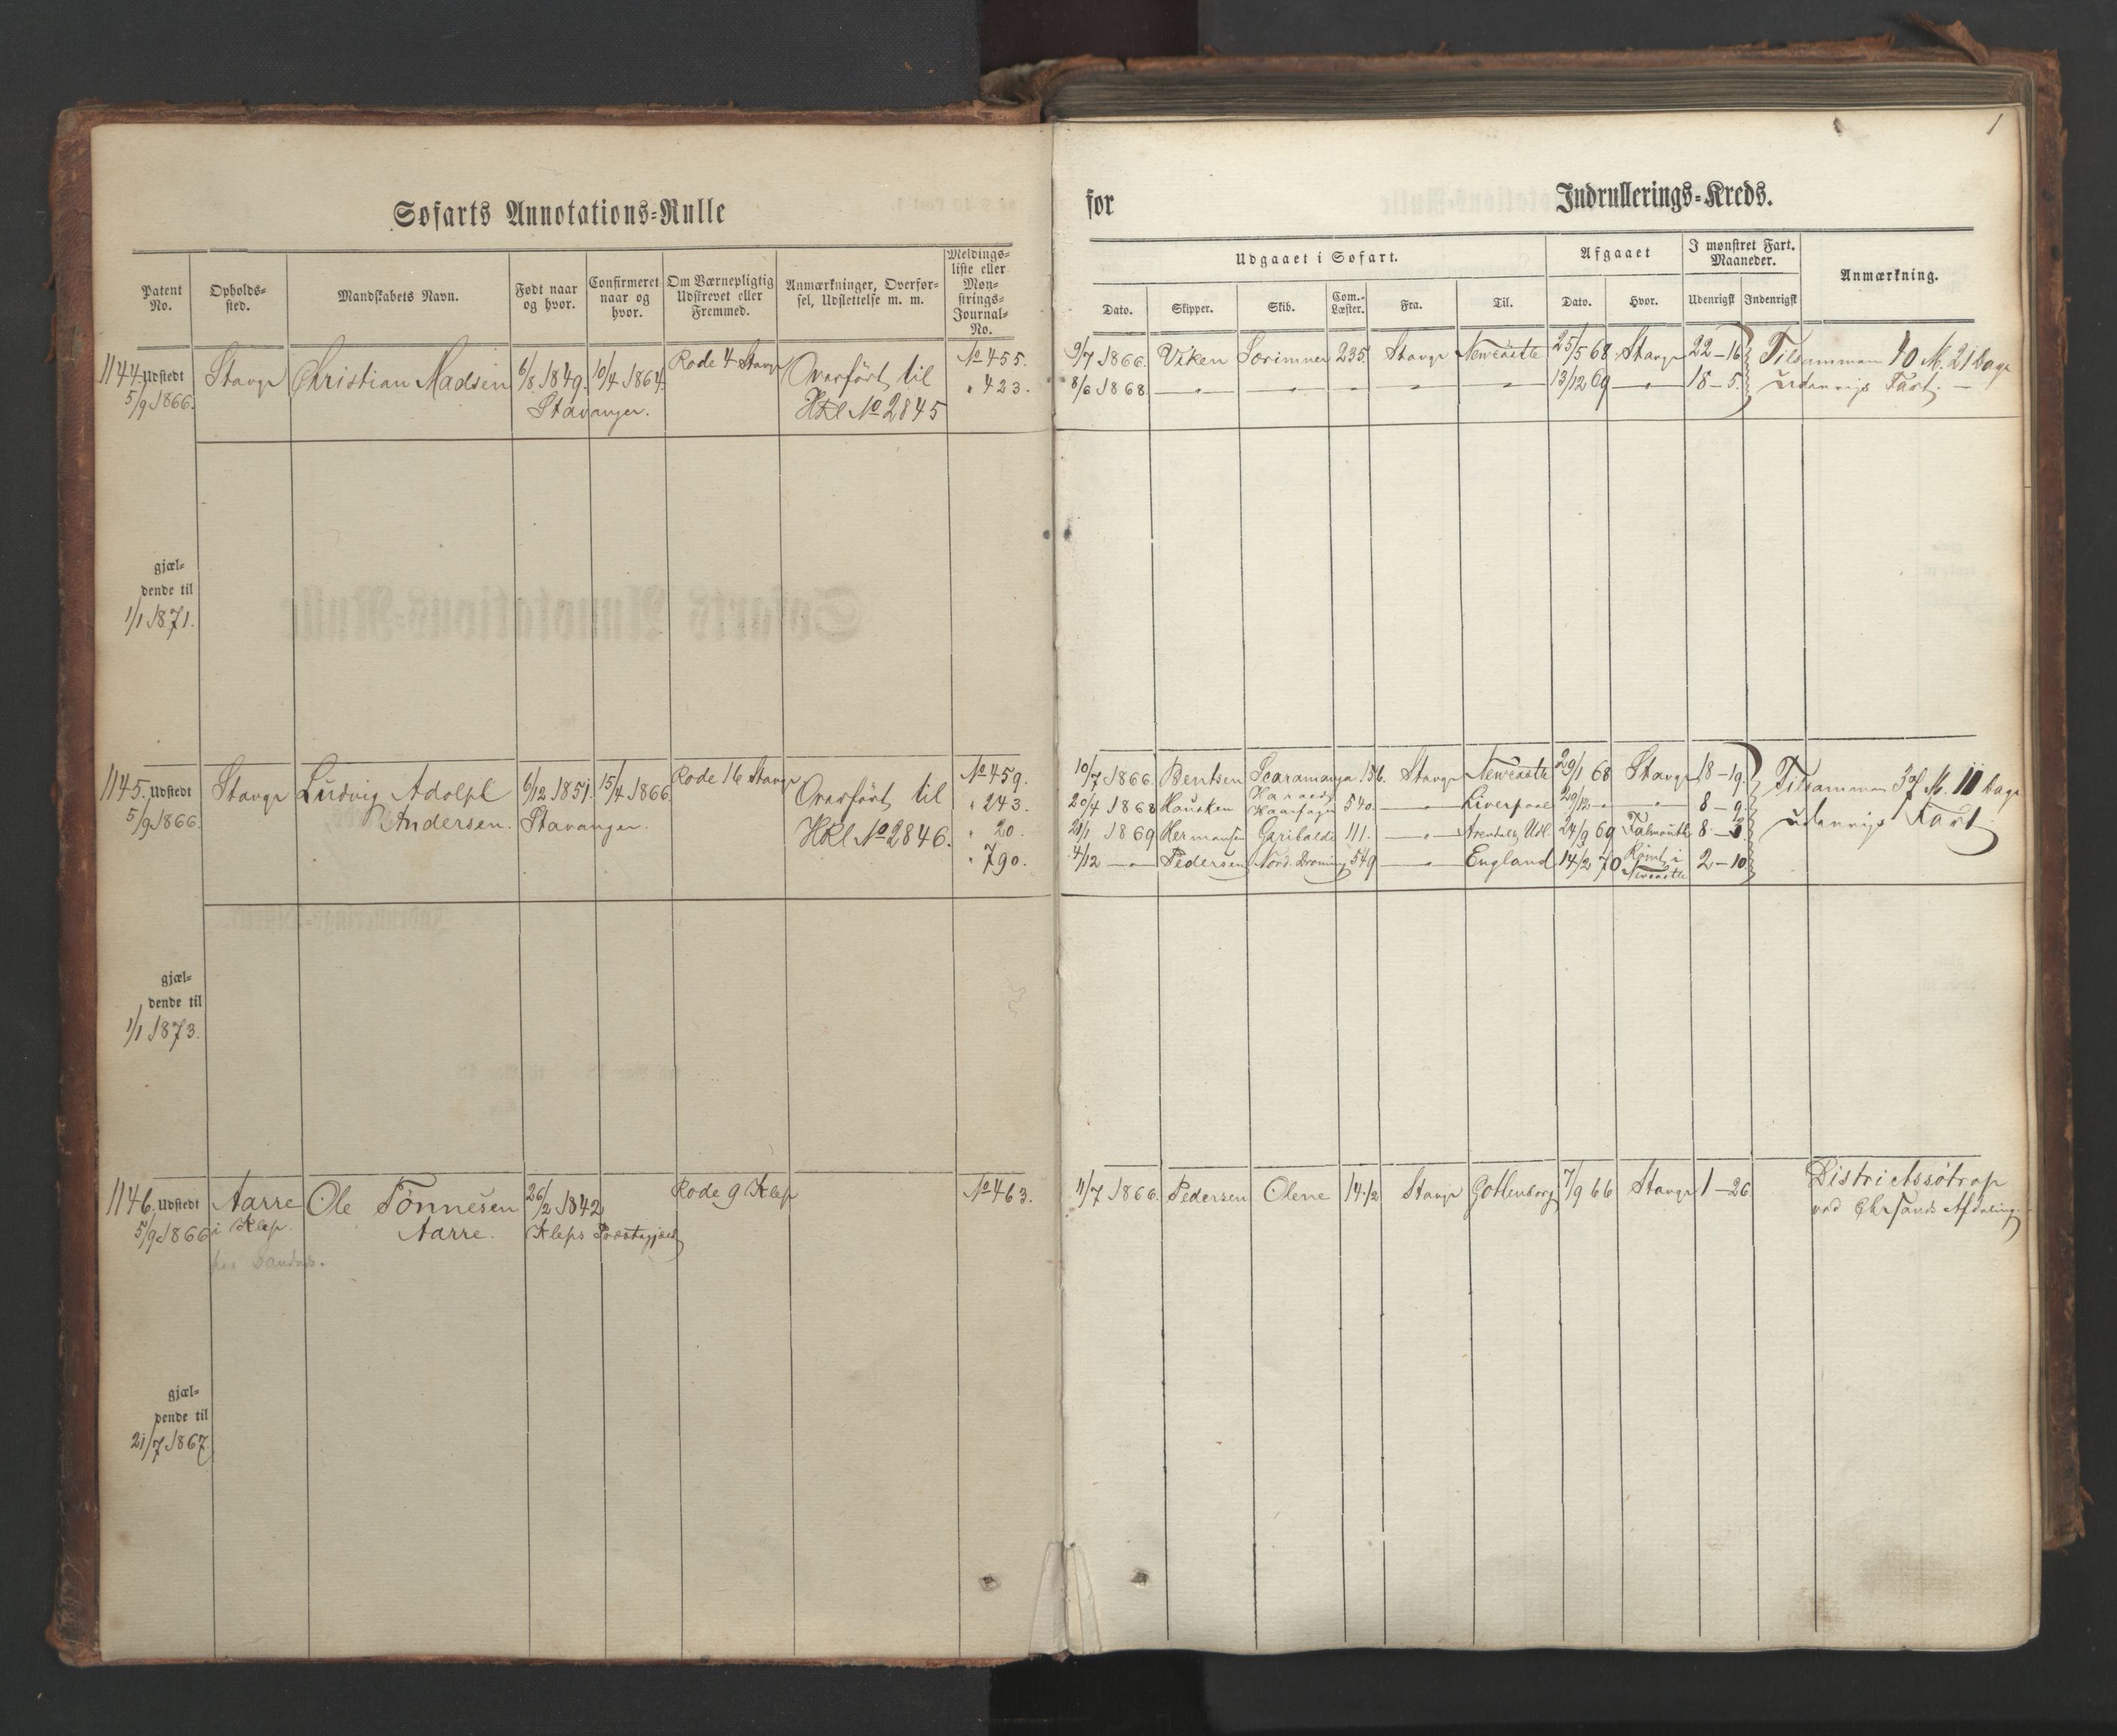 1
Søfarts Annotations=Rulle
for Indrullerings=Kreds.
Patent No.
Opholds=sted.
Mandskabets Navn.
Født naar og hvor.
Confirmeret naar og hvor.
Om Værnepligtig Udskrevet eller Fremmed.
Anmærkninger, Overførsel, Udslettelse m. m.
Meldings=liste eller Møn=strings=Journal=No.
Udgaaet i Søfart.
Afgaaet
I mønstret Fart. Maaneder.
Anmærkning.
Dato. Skipper. Skib. Com.=Læster. Fra. Til. Dato. Hvor. Udenrigsk Indenrigsk
1144. Udstedt Stavgr Christian Madsen 6/8 1849. 10/4 1864. Rode 4 Stavgr Overført til No 455.
5/9 1866. Stavanger. Hkl No 2845 " 423.
9/7 1866. Viken Sørimner 235 Stavgr Newcastle 25/5 68 Stavgr 22–16 Tilsammen 40 M. 21 Dage
8/6 1868 — " — " — " — " — " — 13/12 69 — " — 18–5. udenrigs Fart. —
gjæl=
dende til
1/1 1871.
1145. Udstedt Stavgr Ludvig Adolph 6/12 1851. 15/4 1866 Rode 16 Stavgr Overført til No 459.
5/9 1866. Andersen. Stavanger. Hkl No 2846. " 243.
" 20.
" 790.
10/7 1866. Bentsen Scaramanga 156. Stavgr Newcastle 29/1 68 Stavgr 18–19. Tilsammen 37 M. 11 Dage
20/4 1868 Hausken Harald Haarfager 540. — " — Liverpool 29/12 — " — " — 8–9 udenrigs Fart.
1869 Hermansen Garibaldi 111. — " — Arendal & Udl. 24/9 69 Falmouth 8–3
4/12 — " — Pedersen Nord. Droning 549 — " — England 14/2 70 Rømt i Newcastle 2–10
gjæl=
dende til
1/1 1873.
1146. Udstedt Aarre Ole Tönnesen 26/2 1842 Rode 9 Klep No 463.
5/9 1866 i Klep. Aarre. Kleps Præstegjæld
11/7 1866. Pedersen Olene 14 1/2 Stavgr Gothenborg 7/9 66 Stavgr 1–26 Districtssøtrop
ved Chr Sands Afdeling.
gjæl=
dende til
21/7 1867.